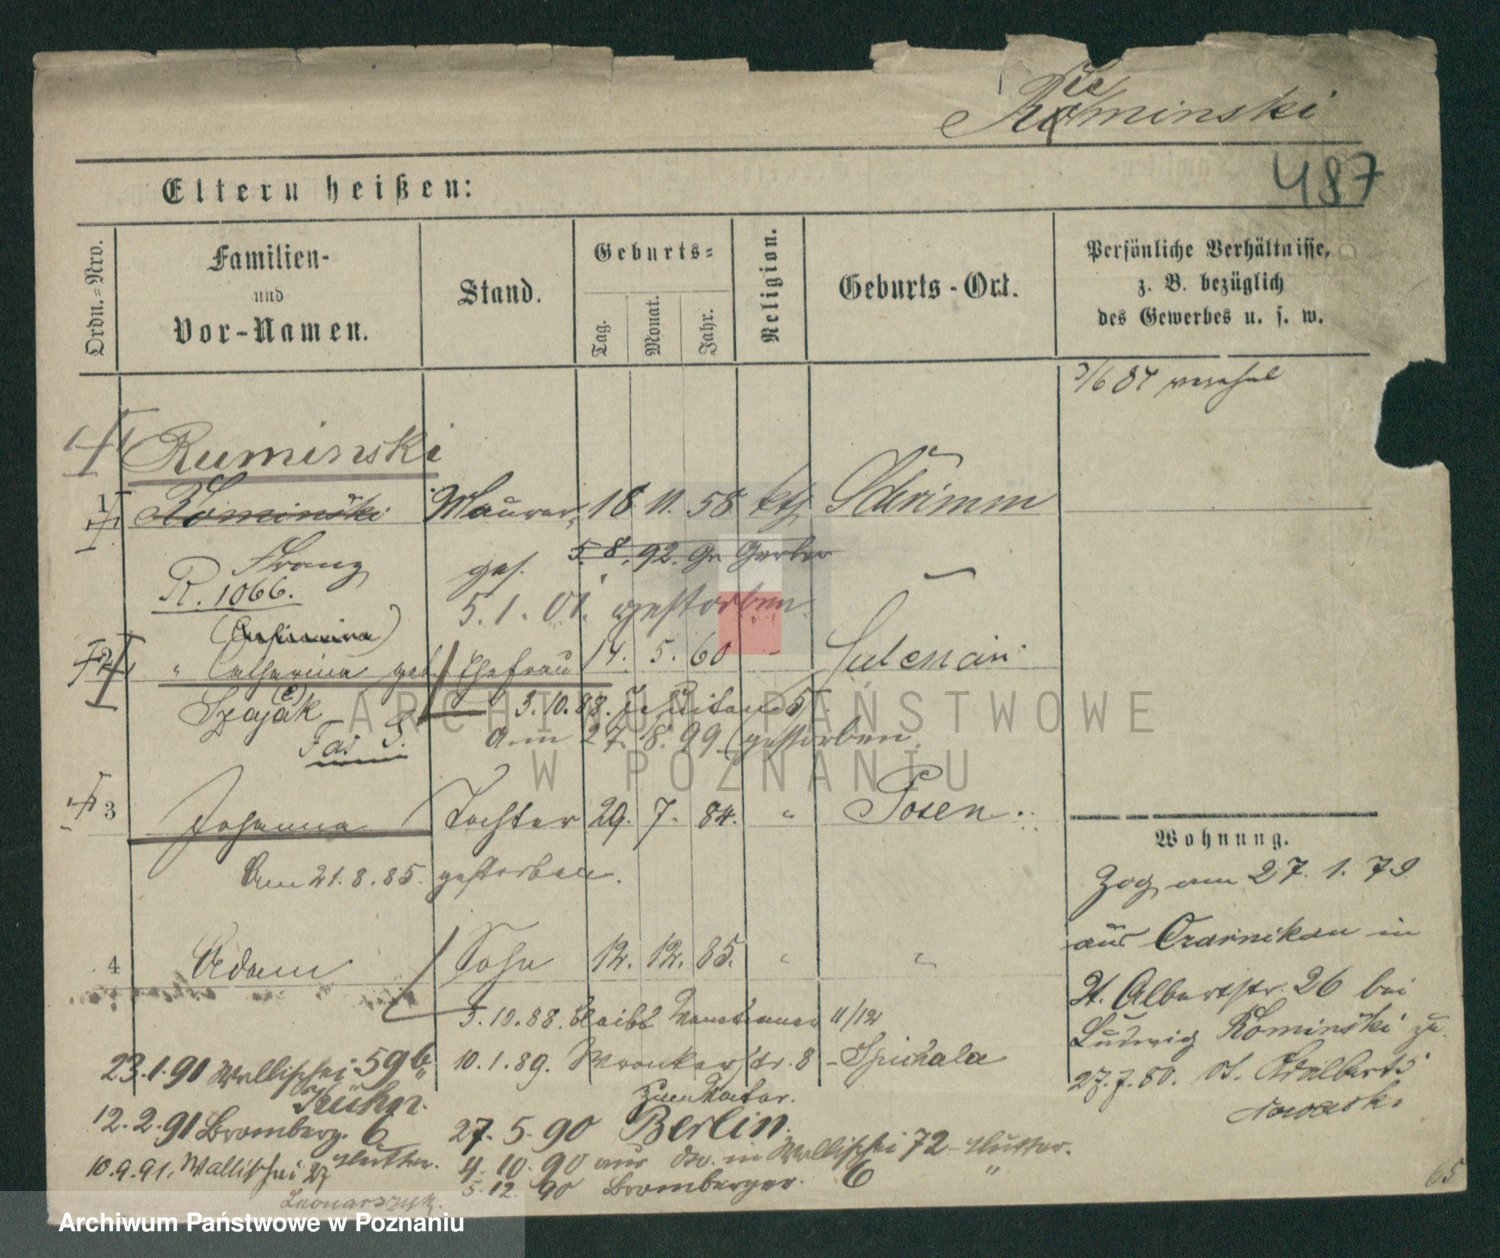 Ruminski
487
Eltern heißen:
Ordn.=Nro.
Familien-
und
Vor-Namen.
Stand.
Geburts=
Tag.
Monat.
Jahr.
Religion.
Geburts-Ort.
Persönliche Verhältnisse,
z. B. bezüglich
des Gewerbes u. s. w.
3/6 84
Ruminski
1 Kominski Maurer 18. 11. 58 kth Schrimm
Franz ges. 5. 8. 92. Gr. Gerber
R. 1066.
5. 1. 01. gestorben
2 " Catharina geb. Ehefrau 14. 5. 60
Szajak 3. 10. 88.
am 27. 8. 99 gestorben.
3 Johanna Tochter 29. 7. 84. " Posen
Am 21. 8. 85. gestorben.
4 Adam Sohn 12. 12. 85. " "
3. 10. 88. bleibt 11/12
10. 1. 89. Wronkerstr. 8
zum Vater.
27. 5. 90 Berlin.
4. 10. 90 aus do. in Wallischei 72 - Mutter.
5. 12. 90 Bromberger. 6 "
23. 1. 91 Wallischei 59b
Kühn.
12. 2. 91 Bromberg. 6
Mutter.
10. 9. 91. Wallischei 27
Leonarszyk.
Wohnung.
Zog am 27. 1. 79
aus Czarnikau in
St. Albertstr. 26 bei
Ludwig Kominski zu
27. 7. 80. St. Adalbert
Nowacki
65
ARCHIWUM PAŃSTWOWE
W POZNANIU
Archiwum Państwowe w Poznaniu